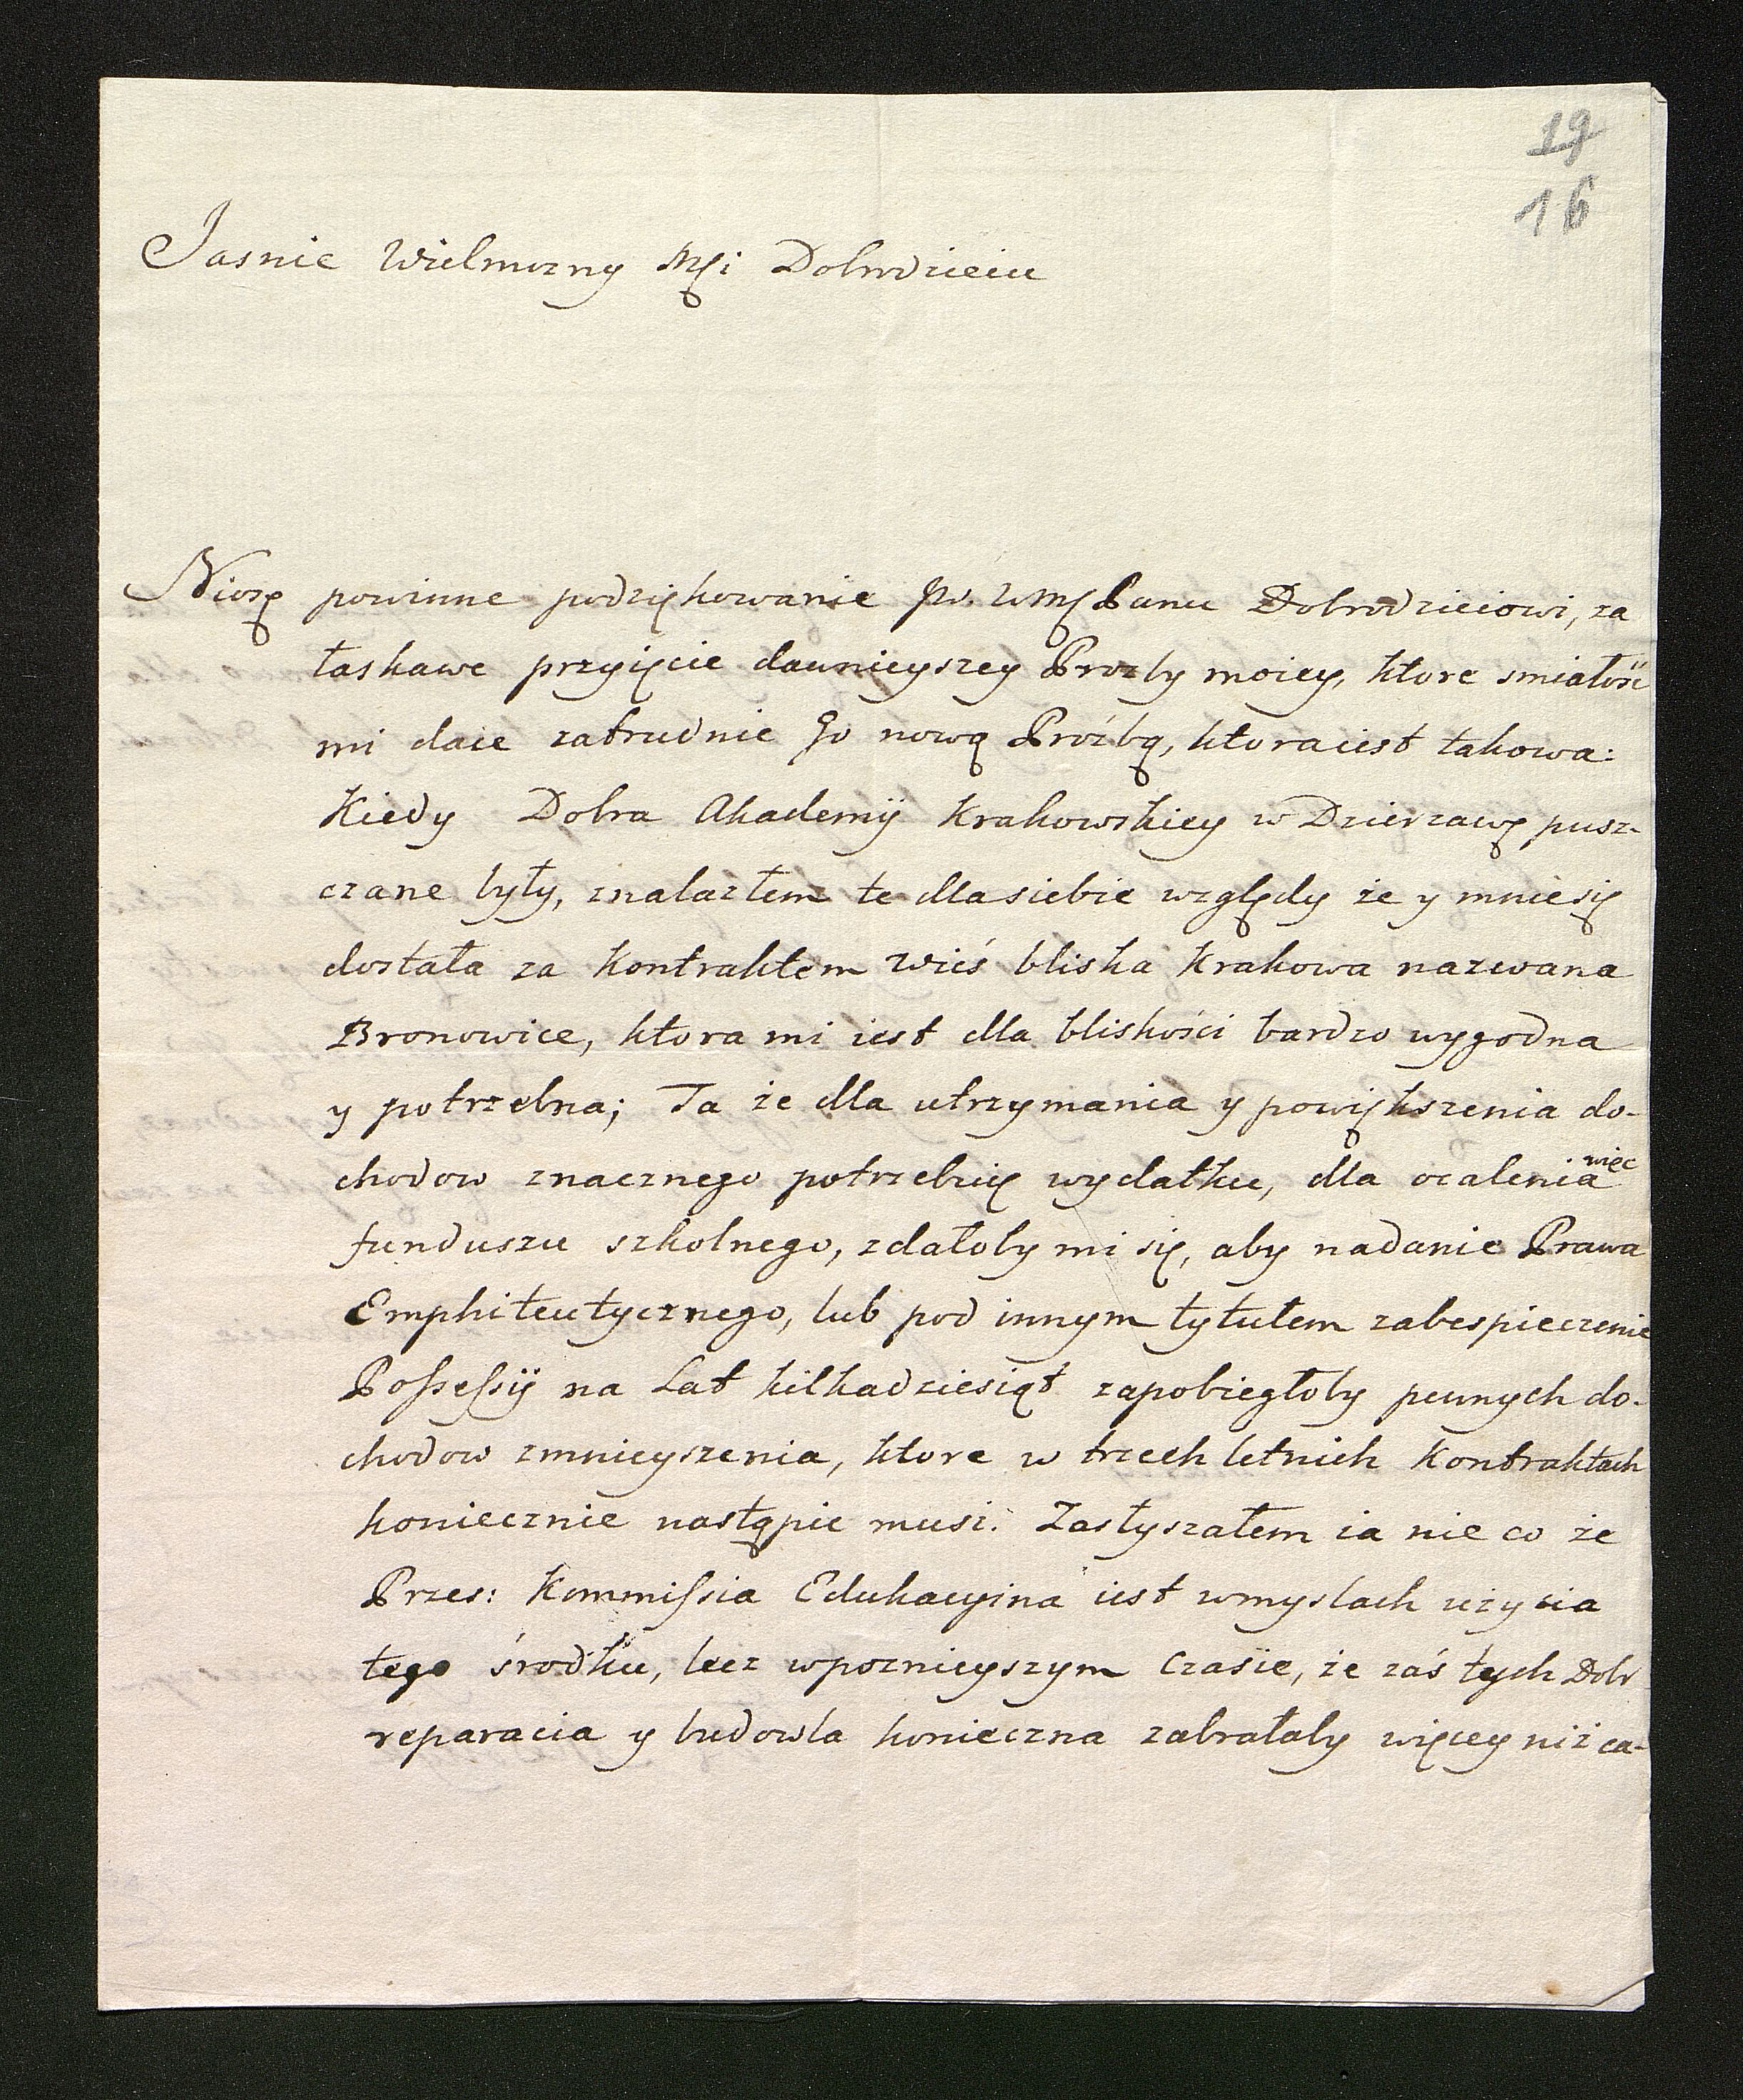 19
16
Jasnie Wielmozny Msci Dobrodzieiu
Niosę powinne podziękowanie Jw. WmPanu Dobrodzieiowi, za
łaskawe przyięcie daunieyszey Prozby moiey, ktore smiałość
mi daie zatrudnic Go nową Prózbą, ktora iest takowa:
Kiedy Dobra Akademij Krakowskiey w Dzierzawę pusz-
czane były, znalazłem te dla siebie względy że y mnie się
dostała za Kontraktem wieś bliska Krakowa nazwana
Bronowice, ktora mi iest dla bliskości bardzo wygodna
y potrzebna; Ta że dla utrzymania y powiększenia do-
chodow znacznego potrzebuię wydatku, dla ocalenia więc
funduszu szkolnego, zdałoby mi się, aby nadanie Prawa
Emphiteutycznego, lub pod innym tytułem zabespieczenie
Possessij na Lat kilkadziesiąt zapobiegłoby pewnych do-
chodow zmnieyszenia, ktore w trzech letnich Kontraktach
koniecznie nastąpic musi. Zasłyszałem ia nie co że
Przes: Kommissia Edukacyina iest wmyslach użycia
tego środku, lecz wpoznieyszym czasie, że zaś tych Dobr
reparacia y budowla konieczna zabrałaby więcey niż ca-